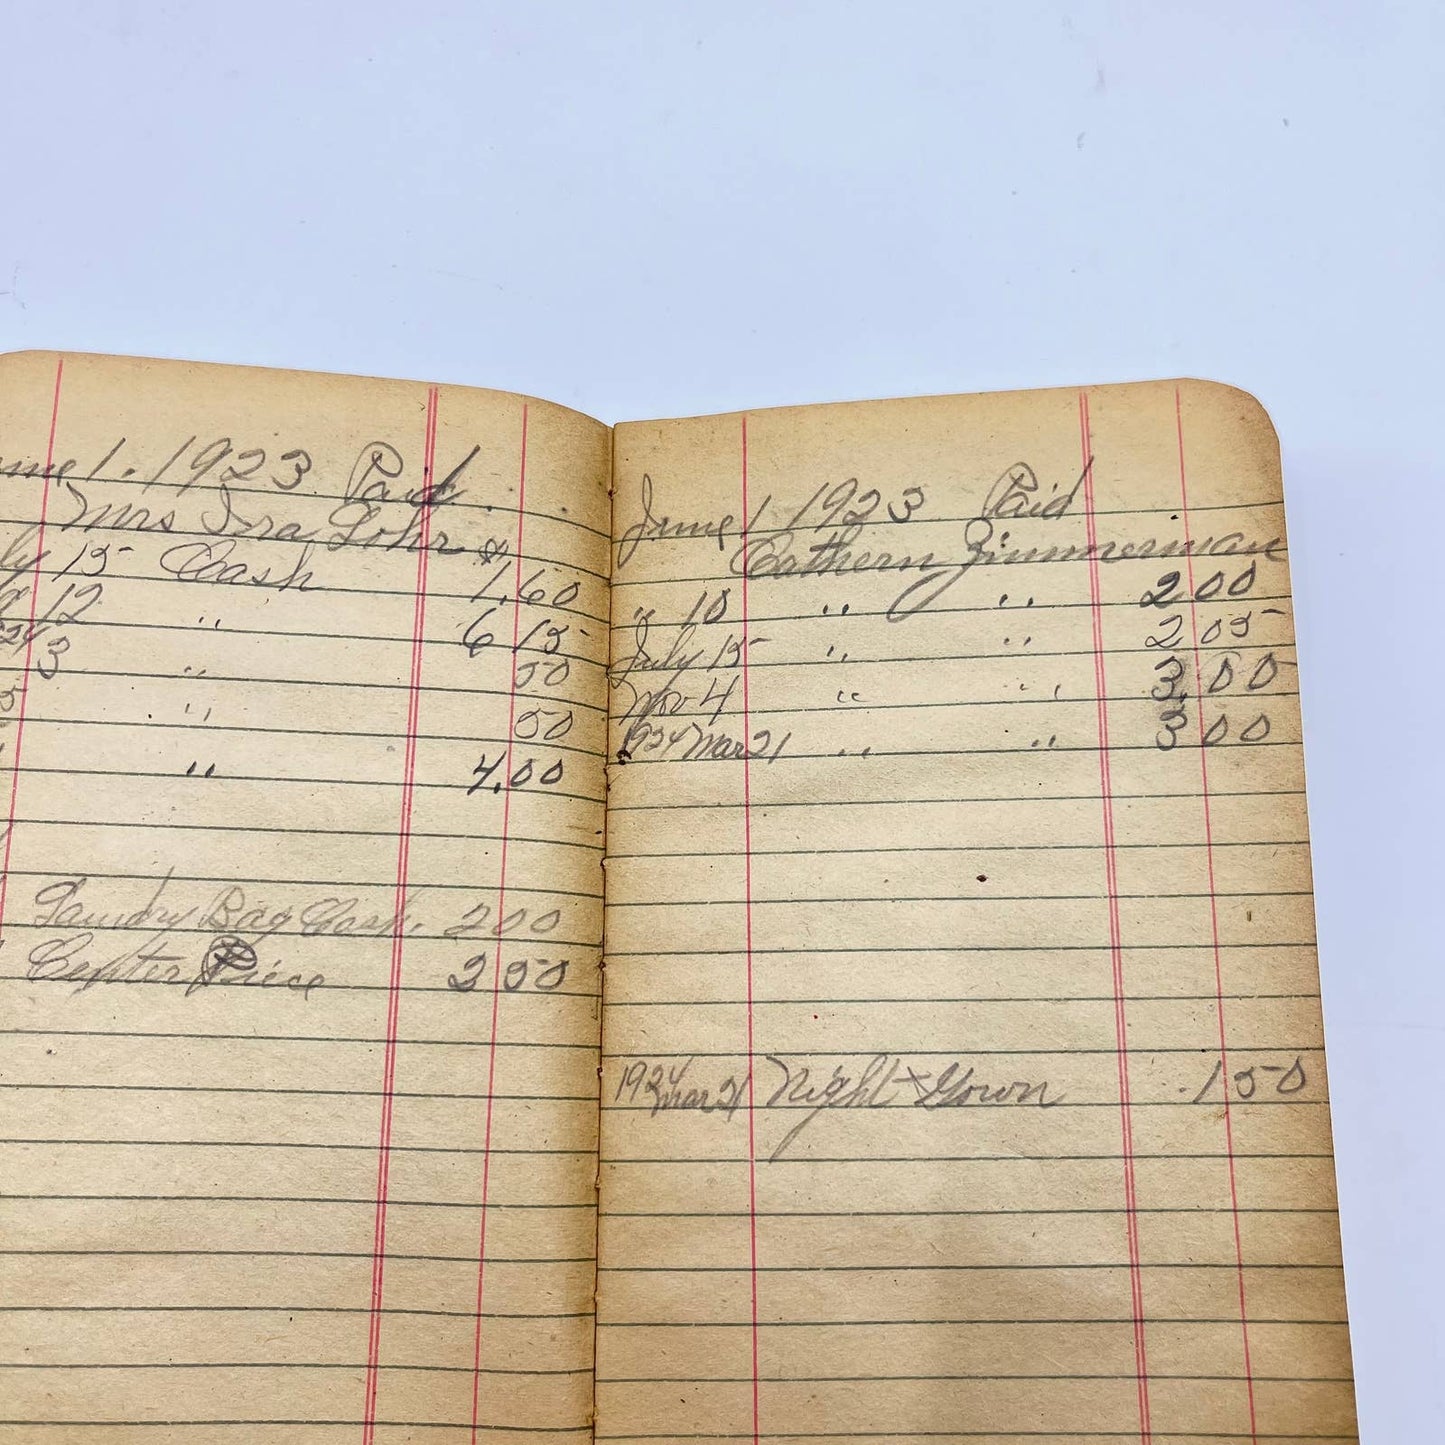 une 1. 1923 Paid
Mrs Ira Lohr $
ly 15 Cash 1.60
12 " 6 15
24 3 " 50
5 " 50
" 4.00
Laundry Bag Cash. 2 00
Center Piece 2 50
June 1 1923 Paid
Cathern Zimmerman
" 10 " " 2 00
July 15 " " 2 05
Nov 4 " " 3.00
1924 Mar 21 " " 3 00
1924 Mar 21 Night Gown .1 50